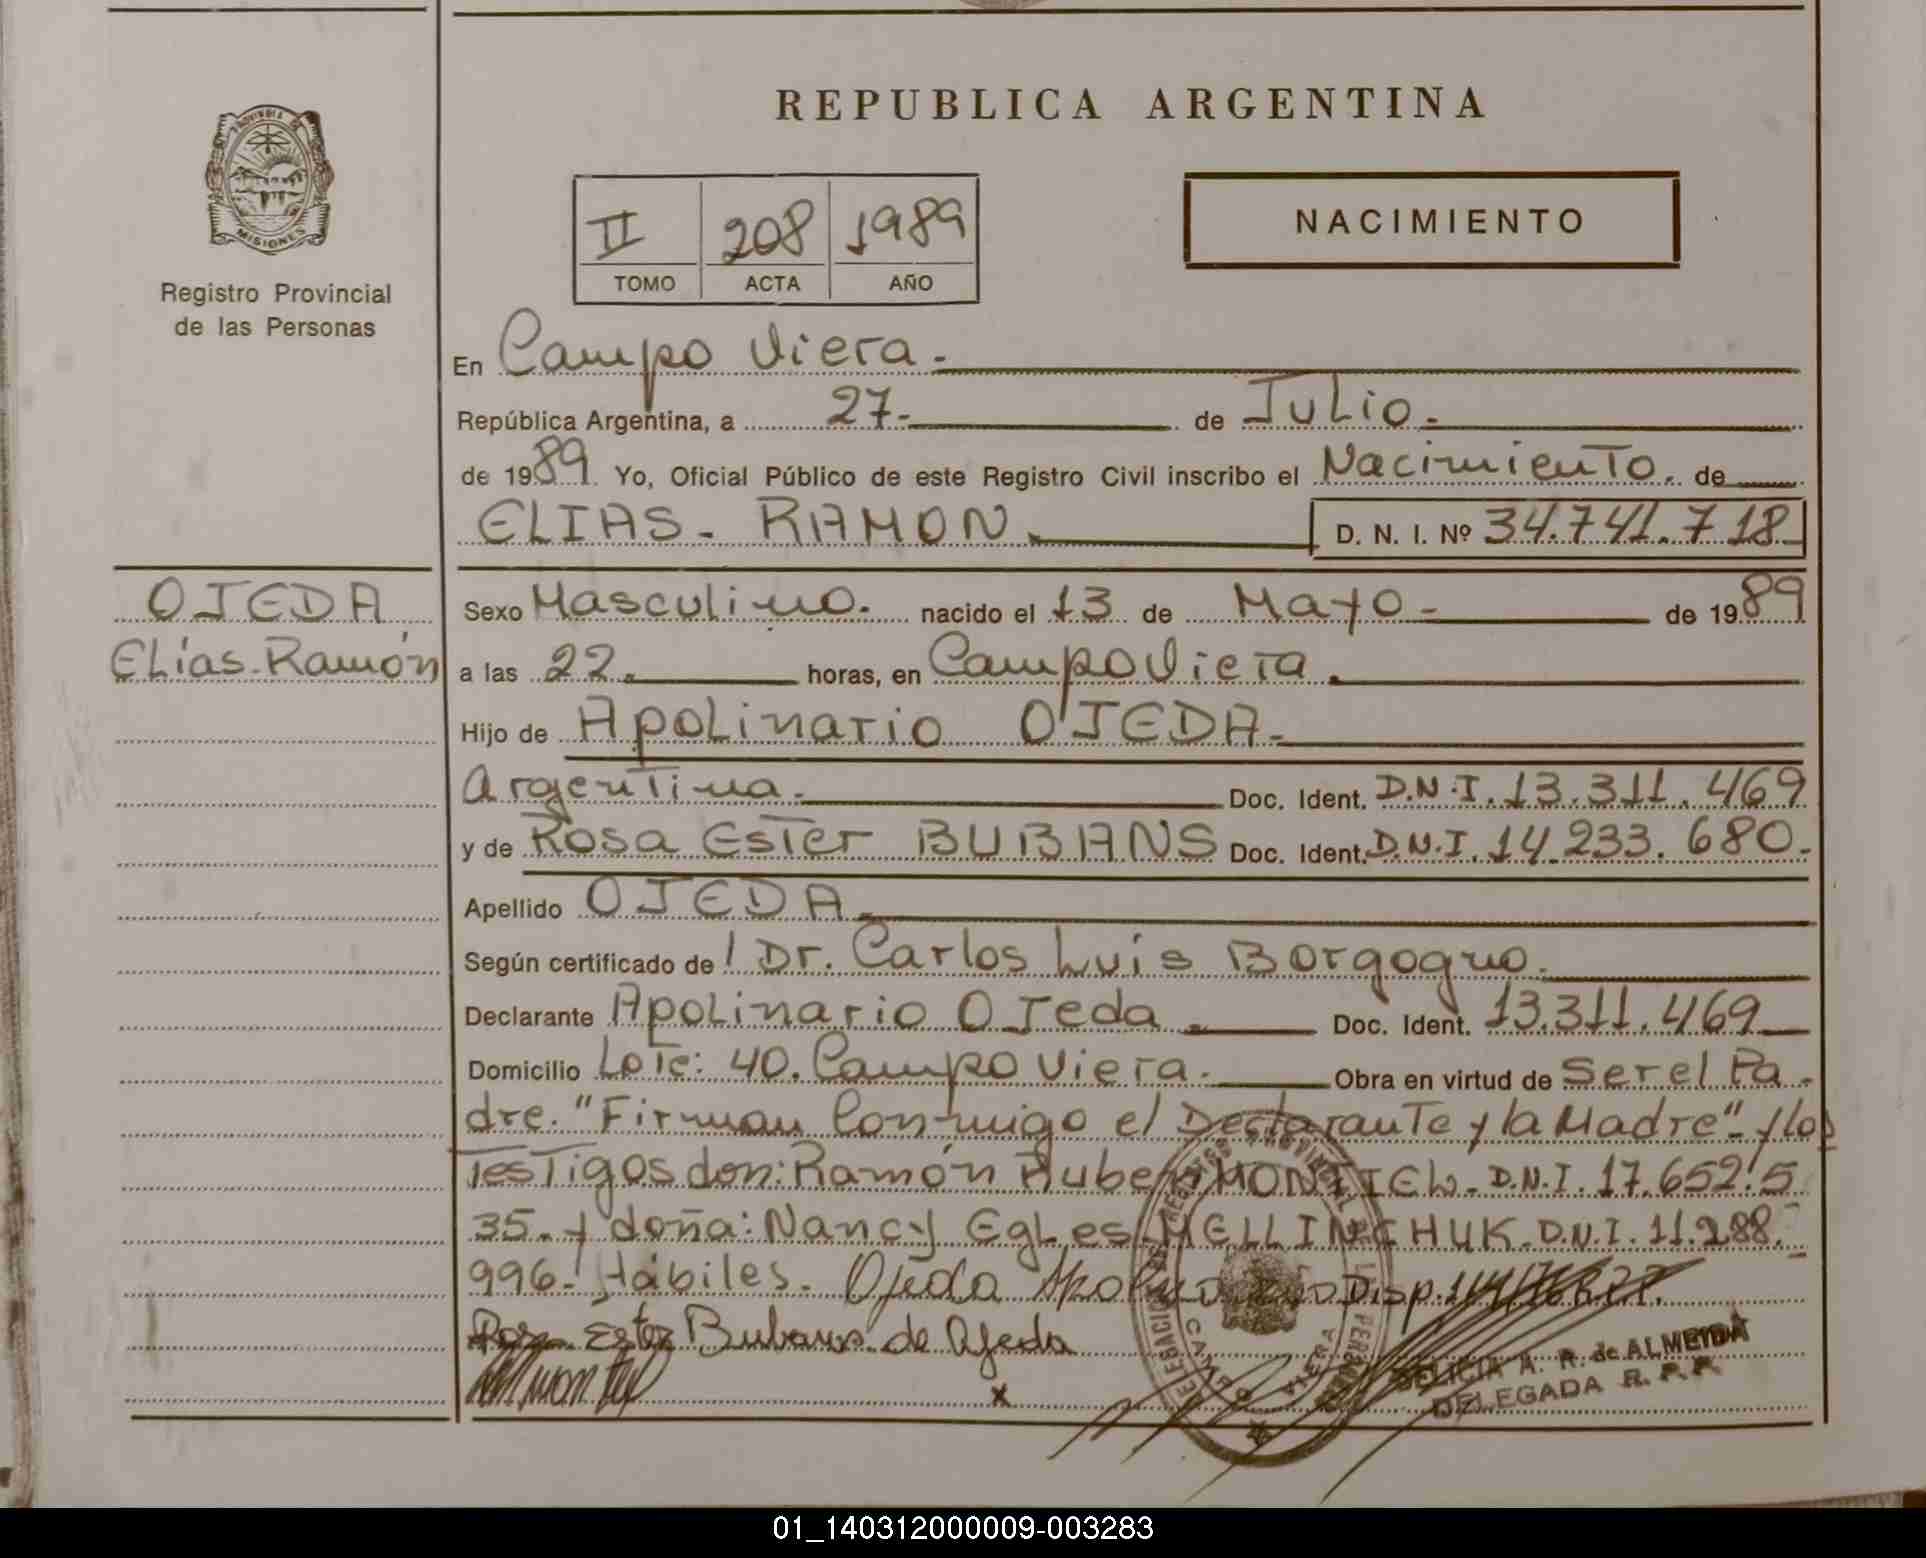 REPUBLICA ARGENTINA
PROVINCIA DE MISIONES
Registro Provincial
de las Personas
II 208 1989
TOMO ACTA AÑO
NACIMIENTO
En Campo Viera.
República Argentina, a 27- de Julio.
de 1989. Yo, Oficial Público de este Registro Civil inscribo el Nacimiento. de
ELIAS - RAMON. D. N. I. Nº 34.741.718
OJEDA
Elías-Ramón
Sexo Masculino. nacido el 13 de Mayo- de 1989
a las 22. horas, en Campo Viera.
Hijo de Apolinario OJEDA-
Argentina. Doc. Ident. D.N.I. 13.311.469
y de Rosa Ester BUBANS Doc. Ident. D.N.I. 14.233.680.
Apellido OJEDA
Según certificado de / Dr. Carlos Luis Borgogno.
Declarante Apolinario OJeda. Doc. Ident. 13.311.469
Domicilio Lote: 40. Campo Viera. Obra en virtud de Ser el Pa-
dre. "Firman Conmigo el Declarante y la Madre" y los
Testigos don: Ramón Ruben MONTIEL. D.N.I. 17.652.5
35. y doña: Nancy Egles MELLINCHUK. D.N.I. 11.288.-
996- Hábiles. Ojeda Disp. 114/76 R.P.P.
Rosa Ester Bubans de Ojeda
DELICIA A. R. de ALMEIDA
DELEGADA R. P. P.
CAMPO VIERA
x
01_140312000009-003283